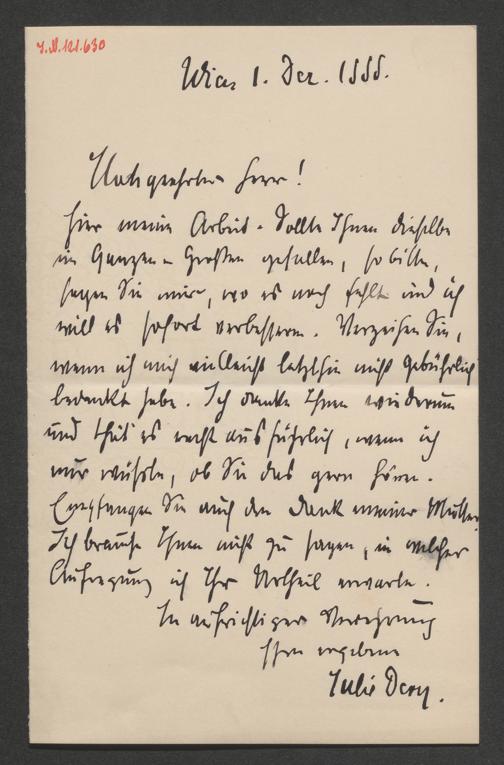 J.N.121.630
Wien 1. Dez. 1888.
Hochgeehrter Herr!
Hier meine Arbeit. Sollte Ihnen dieselbe
im Ganzen u Großen gefallen, so bitte,
sagen Sie mir, wo es noch fehlt und ich
will es sofort verbessern. Verzeihen Sie,
wenn ich mich vielleicht letzthin nicht gebührlich
bedankt habe. Ich danke Ihnen wiederum
und thät es recht ausführlich, wenn ich
nur wüßte, ob Sie das gern hören.
Empfangen Sie auch den Dank meiner Mutter.
Ich brauche Ihnen nicht zu sagen, in welcher
Aufregung ich Ihr Urtheil erwarte.
In aufrichtiger Verehrung
Ihre ergebene
Julie Dery.